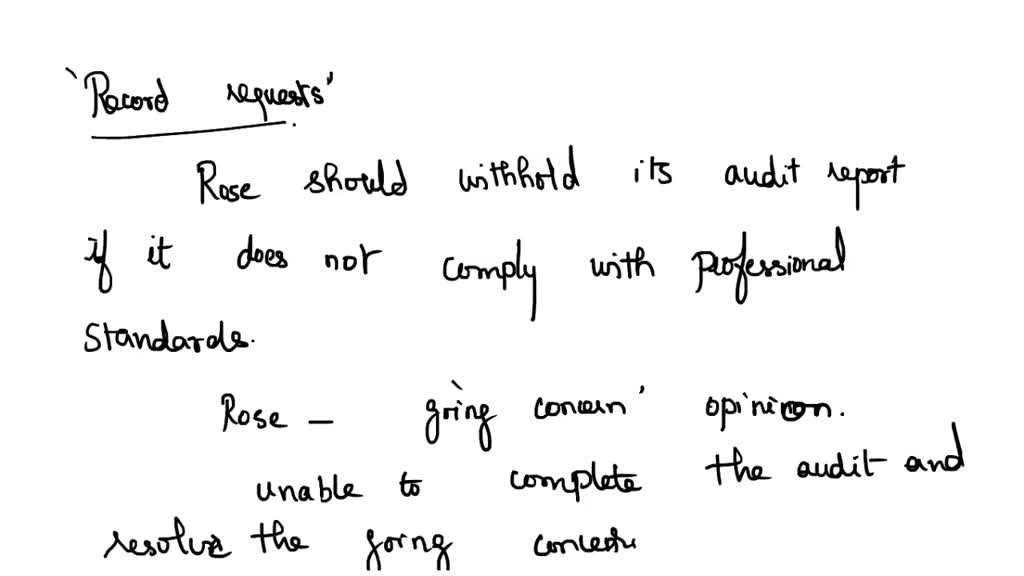 ‘Record requests’
Rose should withhold its audit report
if it does not comply with professional
Standards.
Rose — ‘going concern’ opinion.
unable to complete the audit and
resolve the going concern